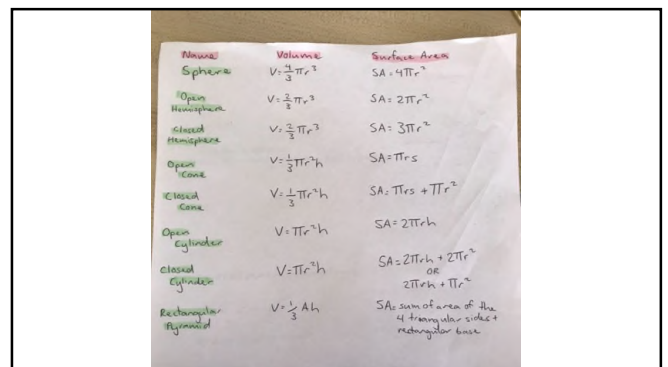 Name Volume Surface Area
Sphere V=4/3 πr³ SA=4πr²
Open Hemisphere V=2/3 πr³ SA=2πr²
Closed Hemisphere V=2/3 πr³ SA=3πr²
Open Cone V=1/3 πr²h SA=πrs
Closed Cone V=1/3 πr²h SA=πrs + πr²
Open Cylinder V=πr²h SA=2πrh
Closed Cylinder V=πr²h SA=2πrh + 2πr²
OR
2πrh + πr²
Rectangular Pyramid V=1/3 Ah SA=sum of area of the
4 triangular sides +
rectangular base